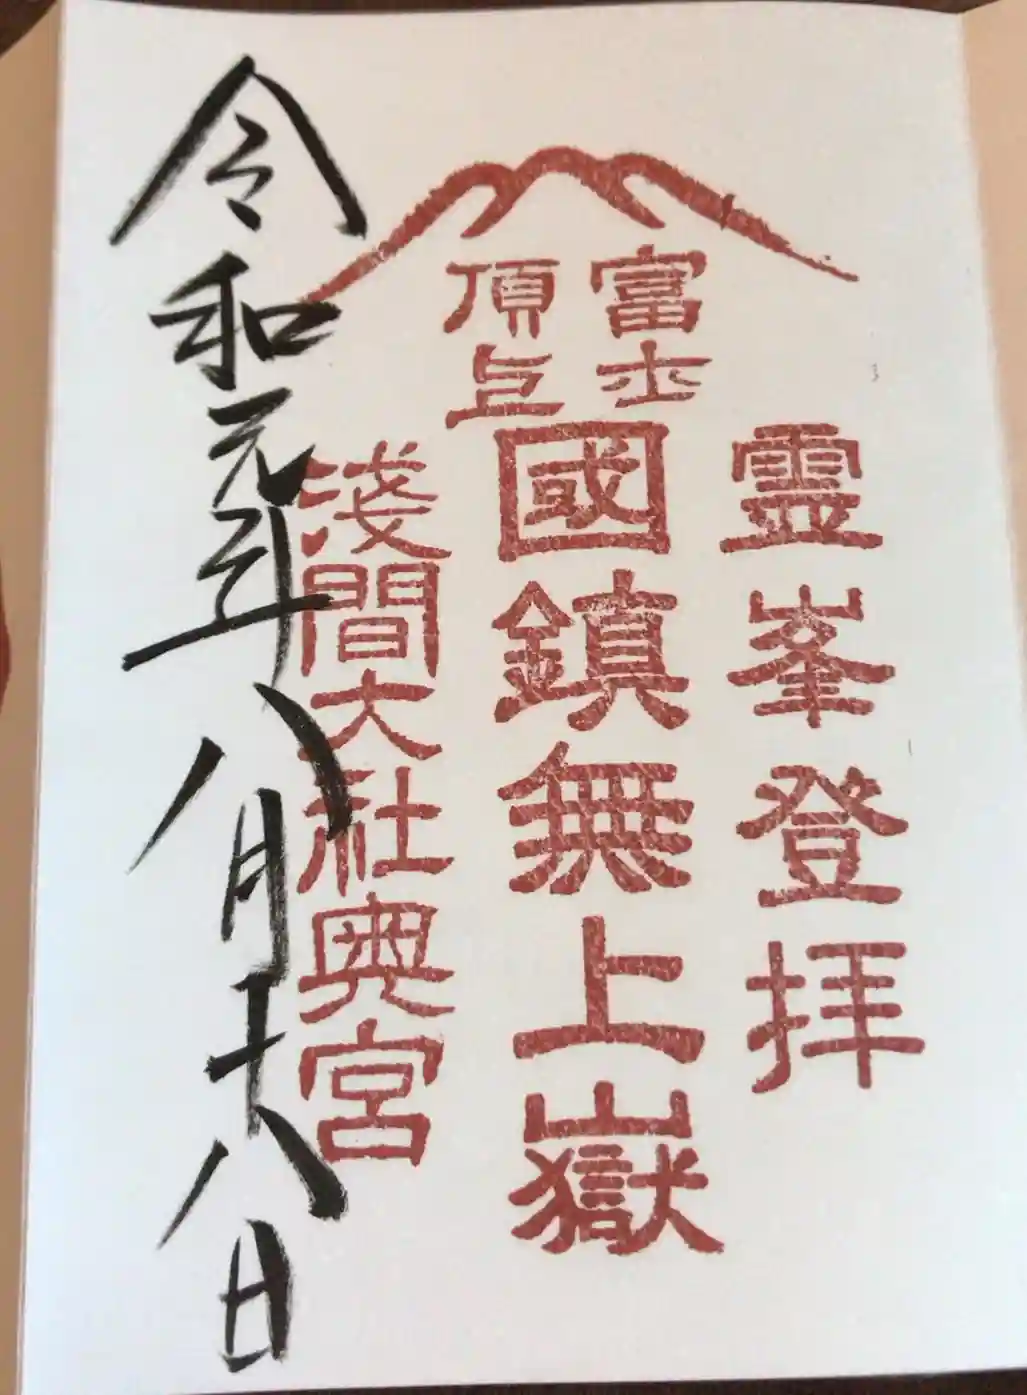 霊峯登拝
富士
頂上
國鎮無上嶽
淺間大社奥宮
令和元年八月十八日